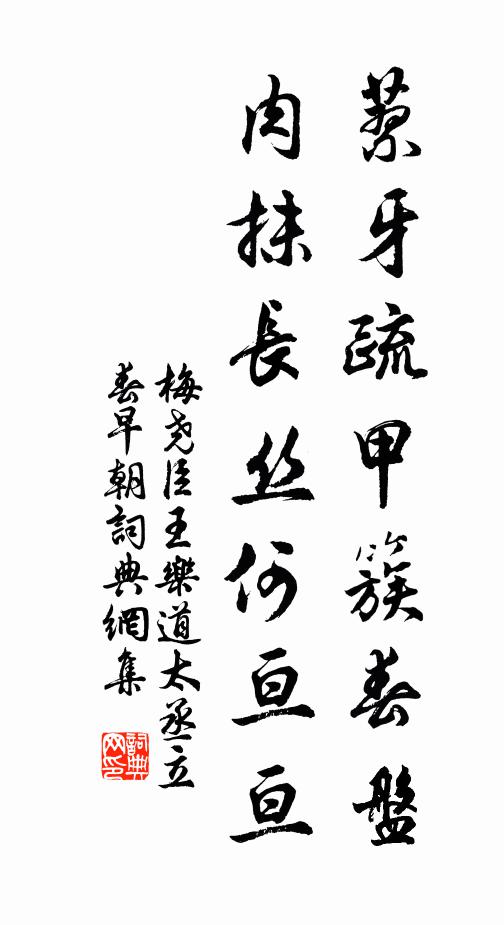 藜牙疏甲簇春盤
肉抹長丝何亘亘
梅尧臣王樂道太丞立
春早朝詞典網集
詞典
网印